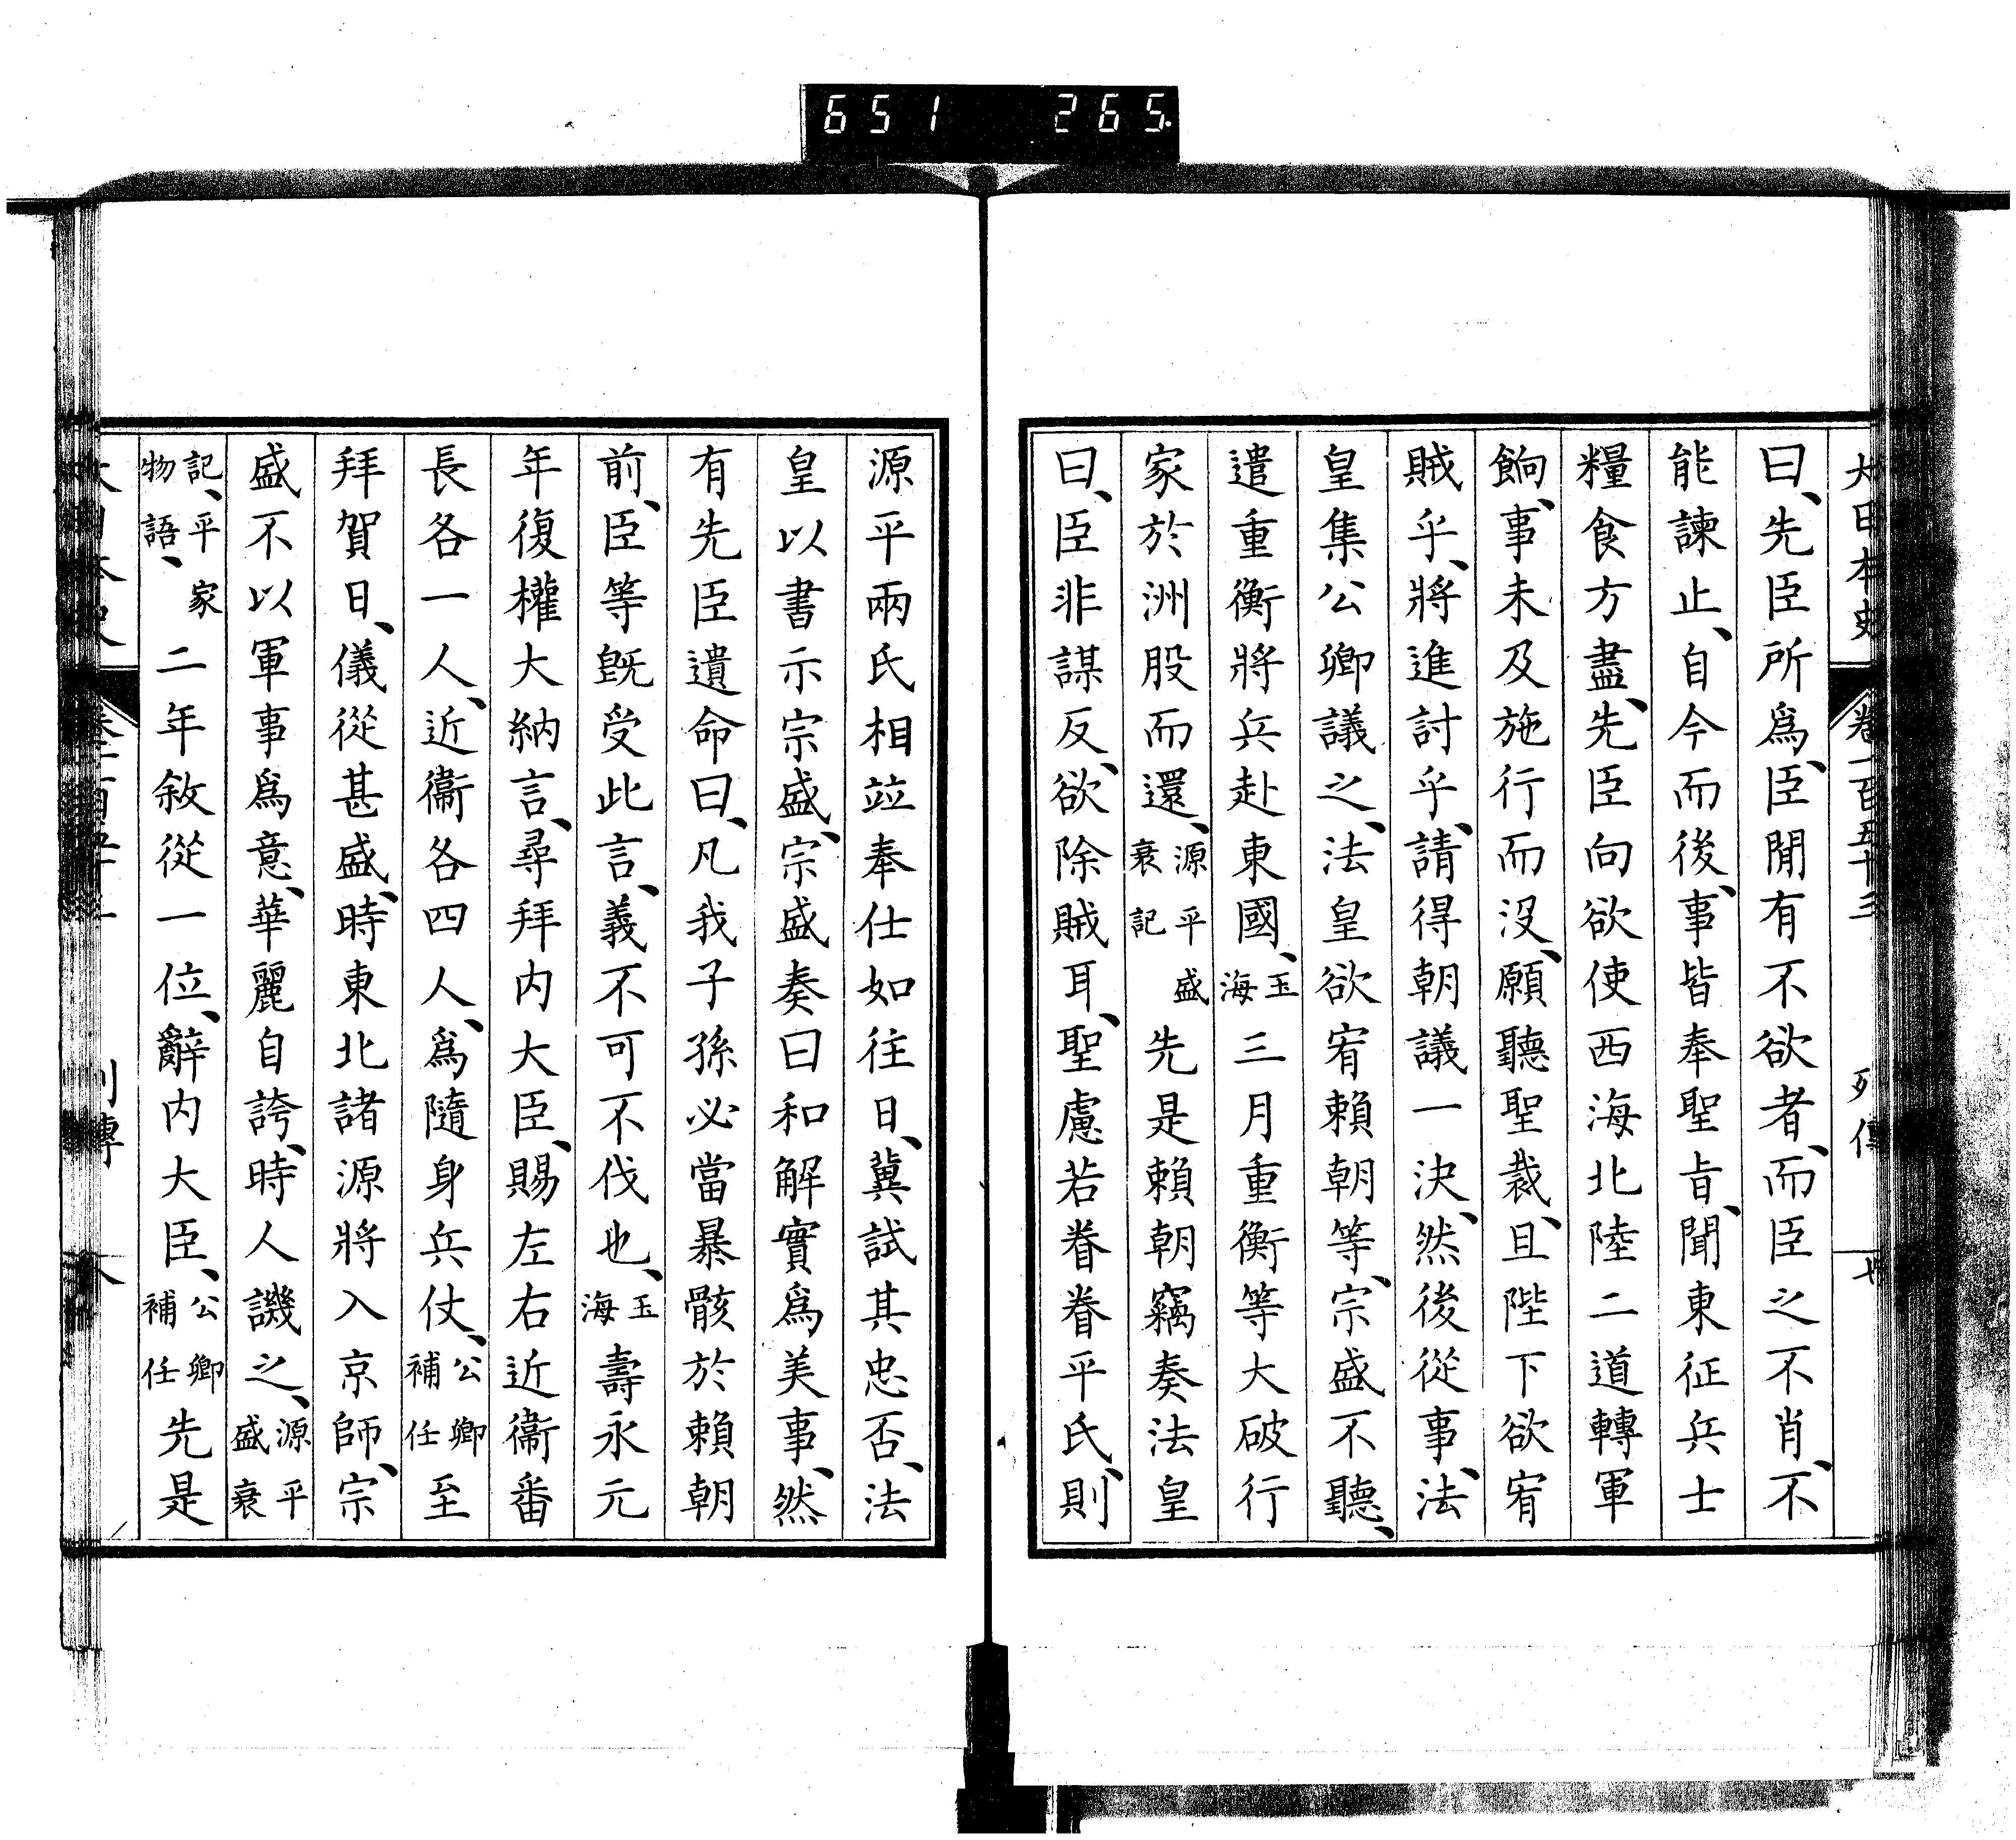 651 265
大日本史 卷一百五十三 列傳
曰、先臣所爲、臣閒有不欲者、而臣之不肖、不
能諫止、自今而後、事皆奉聖旨、聞東征兵士
糧食方盡、先臣向欲使西海北陸二道轉軍
餉、事未及施行而沒、願聽聖裁、且陛下欲宥
賊乎、將進討乎、請得朝議一決、然後從事、法
皇集公卿議之、法皇欲宥賴朝等、宗盛不聽、
遣重衡將兵赴東國、玉海三月重衡等大破行
家於洲股而還、源平盛衰記先是賴朝竊奏法皇
曰、臣非謀反、欲除賊耳、聖慮若眷眷平氏、則
源平兩氏相竝奉仕如往日、冀試其忠否、法
皇以書示宗盛、宗盛奏曰和解實爲美事、然
有先臣遺命曰、凡我子孫必當暴骸於賴朝
前、臣等旣受此言、義不可不伐也、玉海壽永元
年復權大納言、尋拜內大臣、賜左右近衞番
長各一人、近衞各四人、爲隨身兵仗、公卿補任至
拜賀日、儀從甚盛、時東北諸源將入京師、宗
盛不以軍事爲意、華麗自誇、時人譏之、源平盛衰
記、平家物語、二年敘從一位、辭內大臣、公卿補任先是